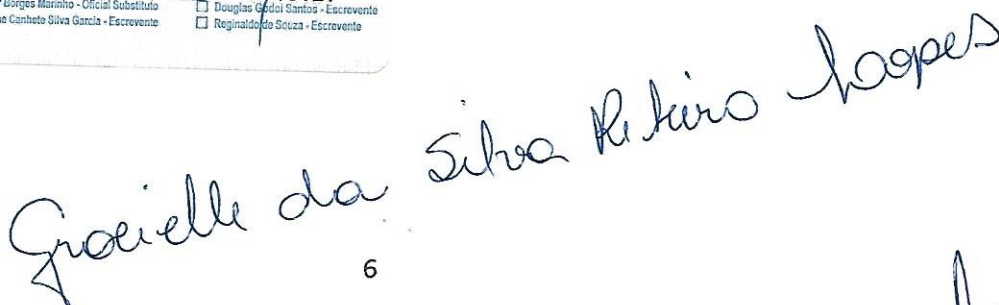 Borges Marinho - Oficial Substituto
☐ Douglas Godoi Santos - Escrevente
e Canhete Silva Garcia - Escrevente
☐ Reginaldo de Souza - Escrevente
Gracielle da Silva Ribeiro Lopes
6